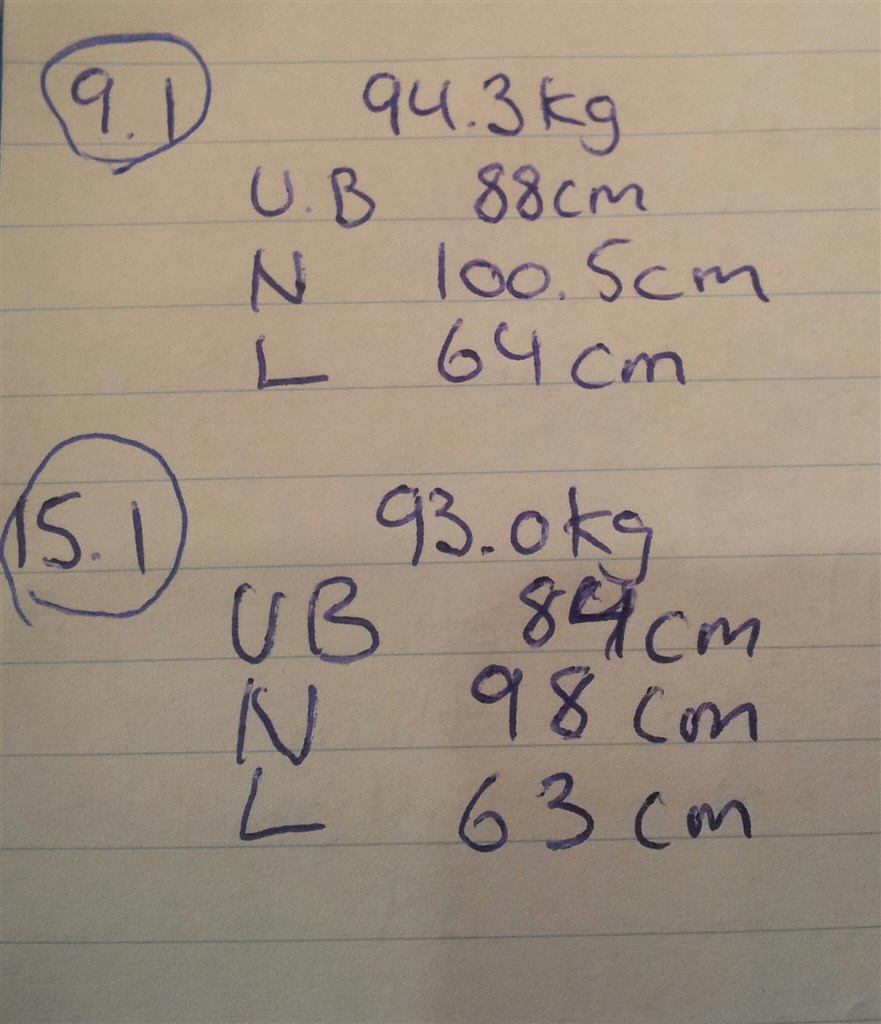 9.1 94.3kg
U.B 88cm
N 100.5cm
L 64cm
15.1 93.0kg
UB 84cm
N 98cm
L 63cm